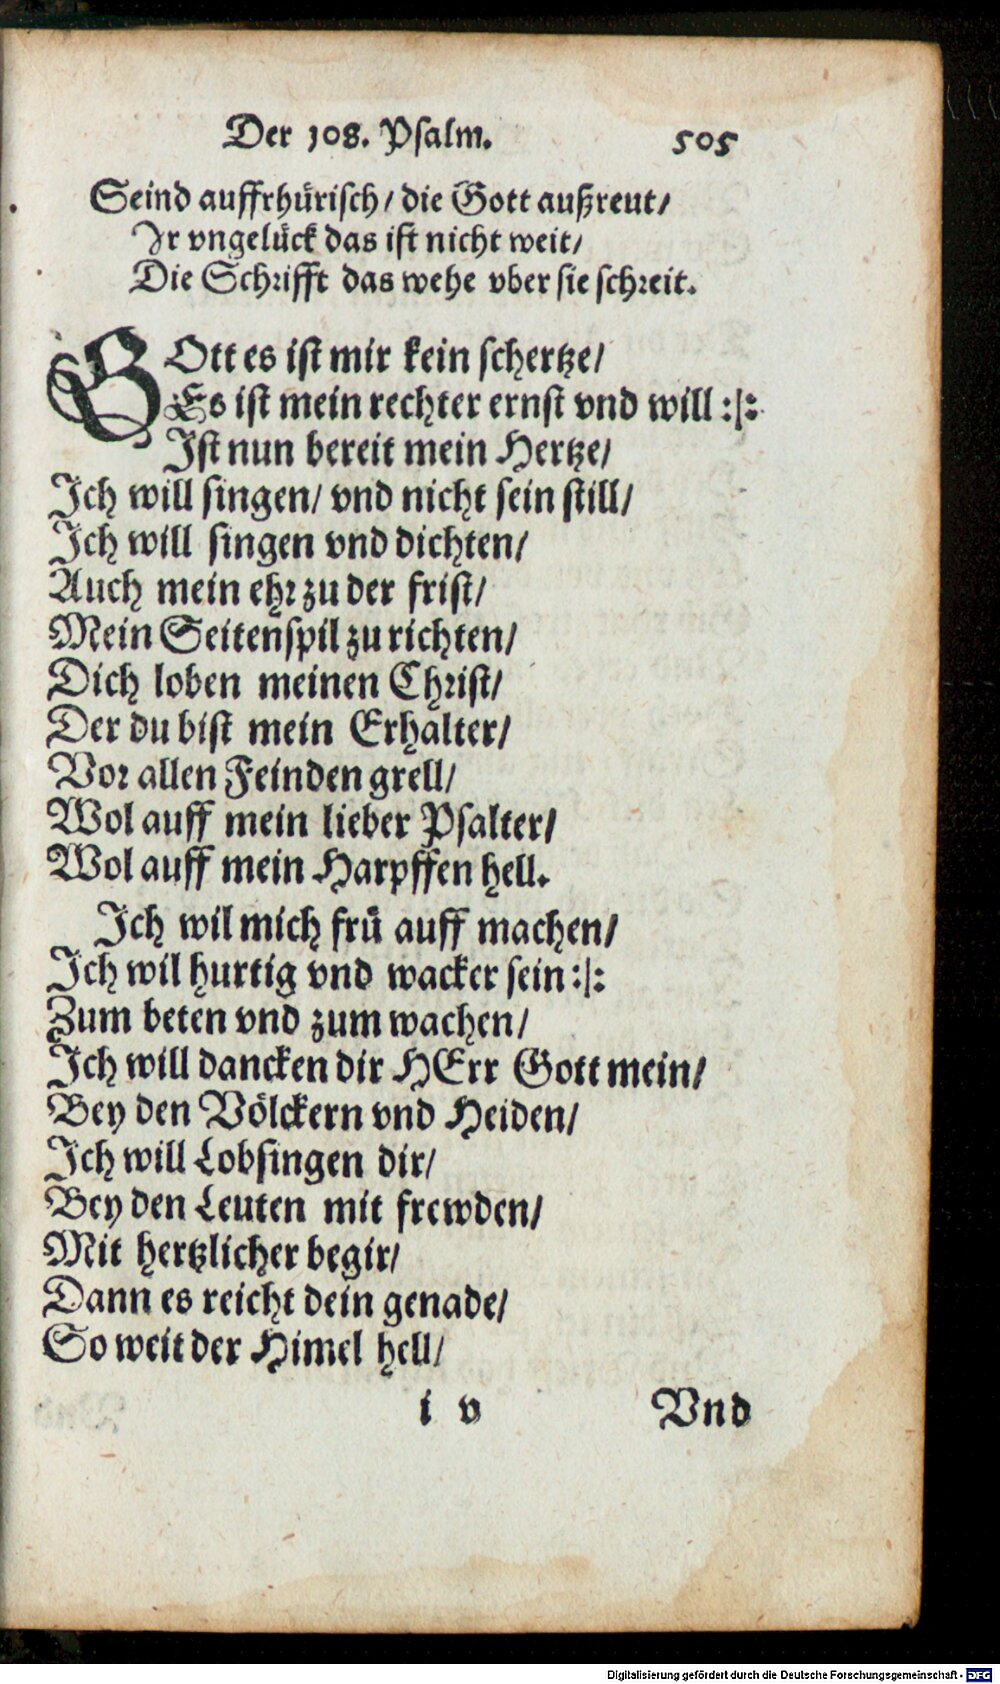 Der 108. Psalm. 505
Seind auffrhürisch/ die Gott außreut/
Ir vngelück das ist nicht weit/
Die Schrifft das wehe vber sie schreit.
GOtt es ist mir kein schertze/
Es ist mein rechter ernst vnd will :|:
Ist nun bereit mein Hertze/
Ich will singen/ vnd nicht sein still/
Ich will singen vnd dichten/
Auch mein ehr zu der frist/
Mein Seitenspil zu richten/
Dich loben meinen Christ/
Der du bist mein Erhalter/
Vor allen Feinden grell/
Wol auff mein lieber Psalter/
Wol auff mein Harpffen hell.
Ich wil mich frü auff machen/
Ich wil hurtig vnd wacker sein :|:
Zum beten vnd zum wachen/
Ich will dancken dir HErr Gott mein/
Bey den Völckern vnd Heiden/
Ich will Lobsingen dir/
Bey den Leuten mit frewden/
Mit hertzlicher begir/
Dann es reicht dein genade/
So weit der Himel hell/
i v Vnd
Digitalisierung gefördert durch die Deutsche Forschungsgemeinschaft - DFG